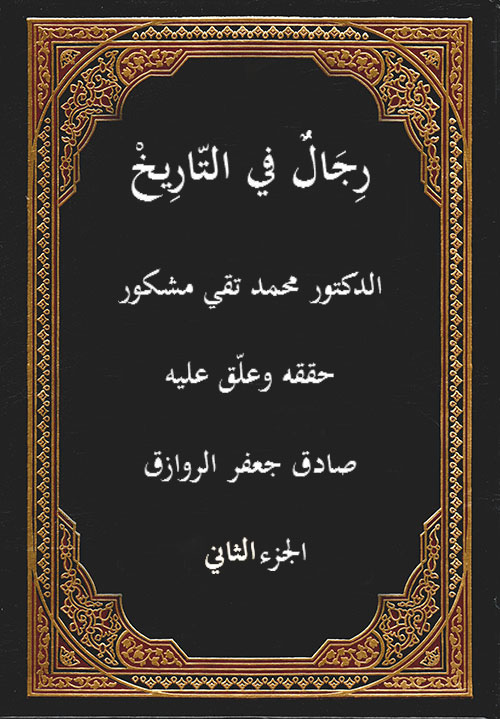 رِجَالٌ في التّارِيخْ
الدكتور محمد تقي مشكور
حققه وعلّق عليه
صادق جعفر الروازق
الجزء الثاني